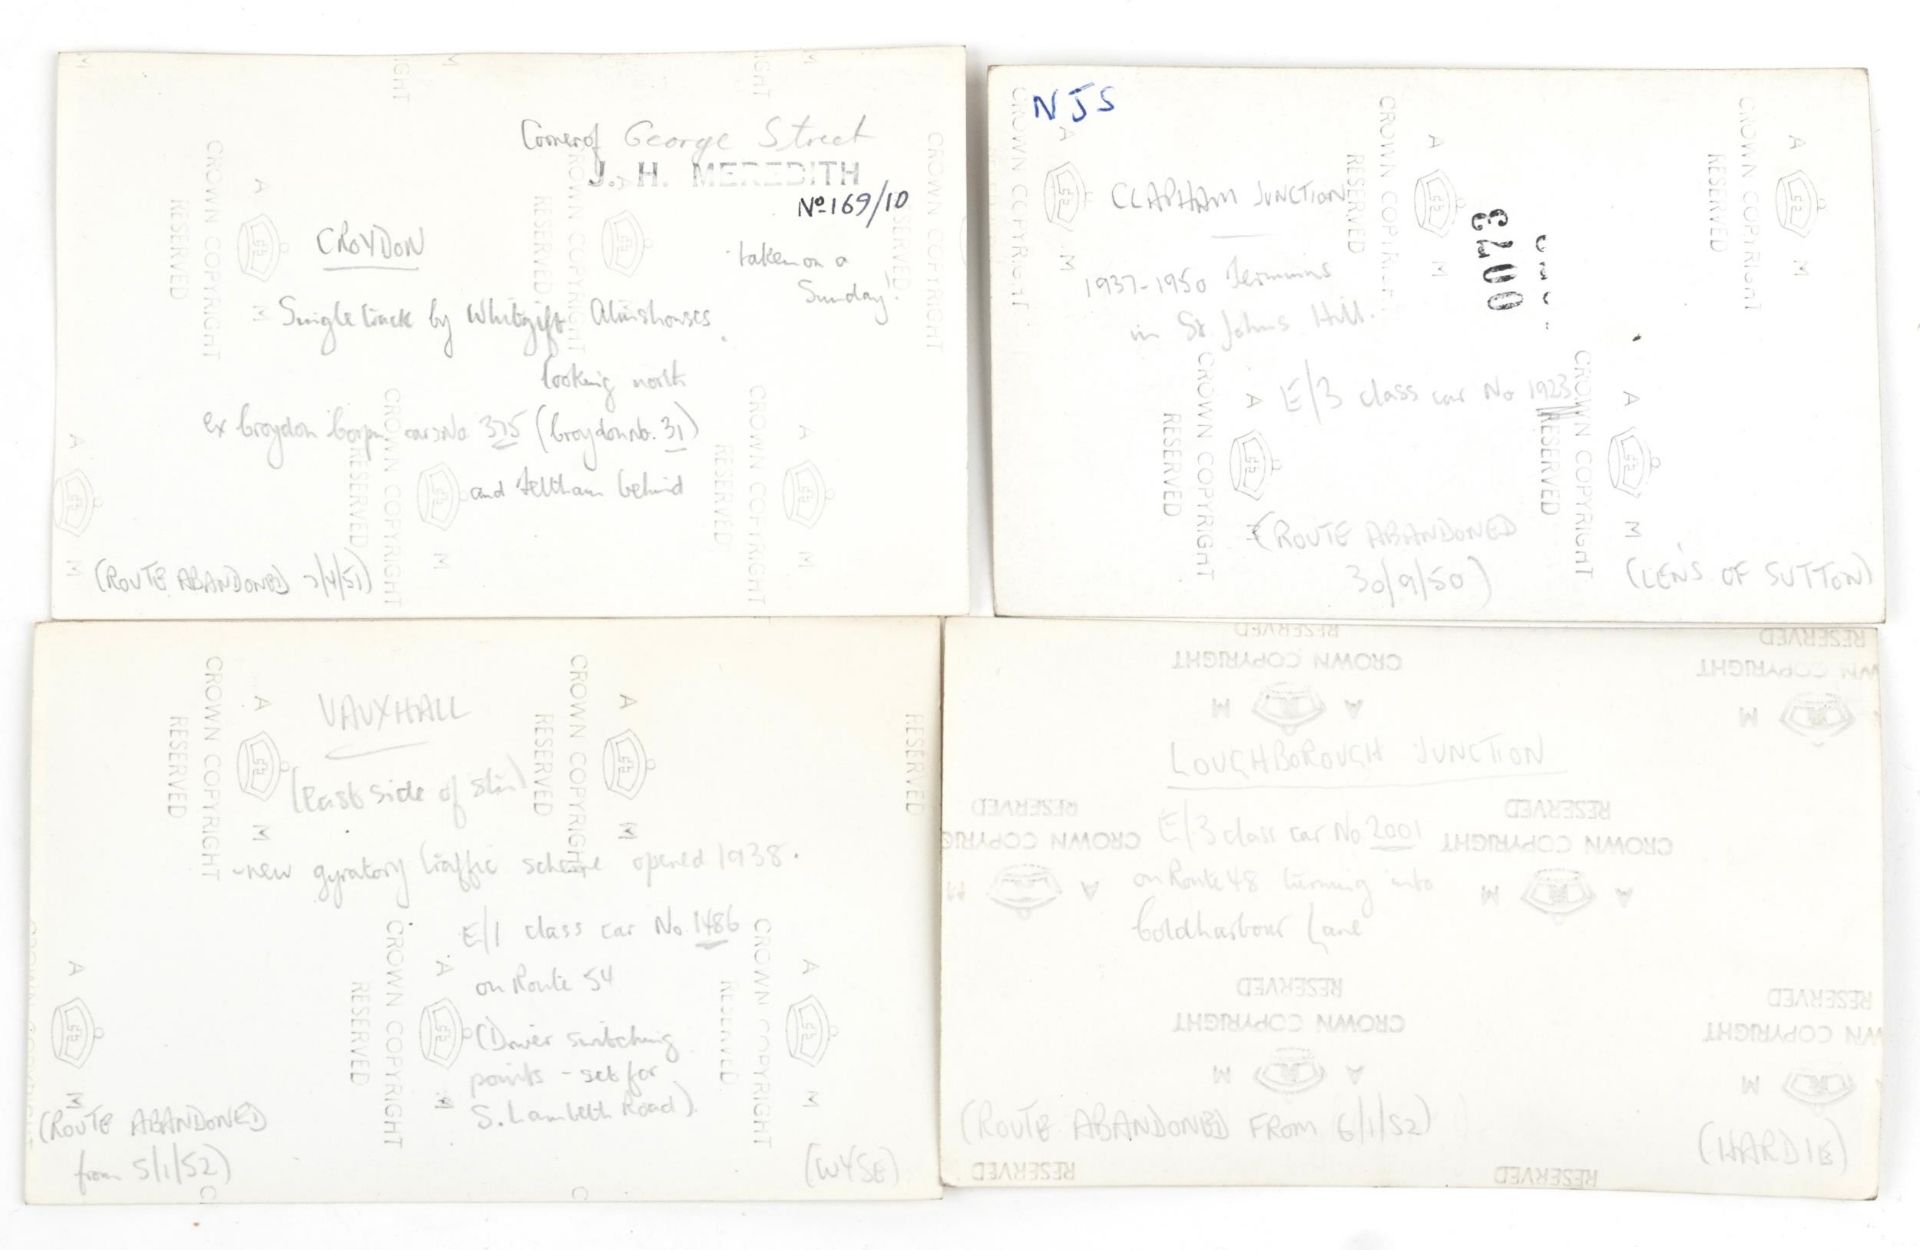 Corner of George Street
J. H. MEREDITH
No 169/10
CROYDON
taken on a
Sunday.
Single track by Whitgift Almshouses.
looking north
ex Croydon Corpn. car No 375 (Croydon No. 31)
and Feltham behind
(ROUTE ABANDONED 7/4/51)
CROWN COPYRIGHT
RESERVED
A M
NJS
CLAPHAM JUNCTION
1937-1950 Terminus
in St. Johns Hill.
0073
E/3 class car No 1923
(ROUTE ABANDONED
30/9/50)
(LENS OF SUTTON)
CROWN COPYRIGHT
RESERVED
A M
VAUXHALL
(East side of stn)
-new gyratory traffic scheme opened 1938.
E/1 class car No 1486
on Route 54
(Driver switching
points - set for
S. Lambeth Road).
(ROUTE ABANDONED
from 5/1/52)
(WYSE)
CROWN COPYRIGHT
RESERVED
A M
LOUGHBOROUGH JUNCTION
E/3 class car No 2001
on Route 48 turning into
Coldharbour Lane
(ROUTE ABANDONED FROM 6/1/52)
(HARDIE)
CROWN COPYRIGHT
RESERVED
A M